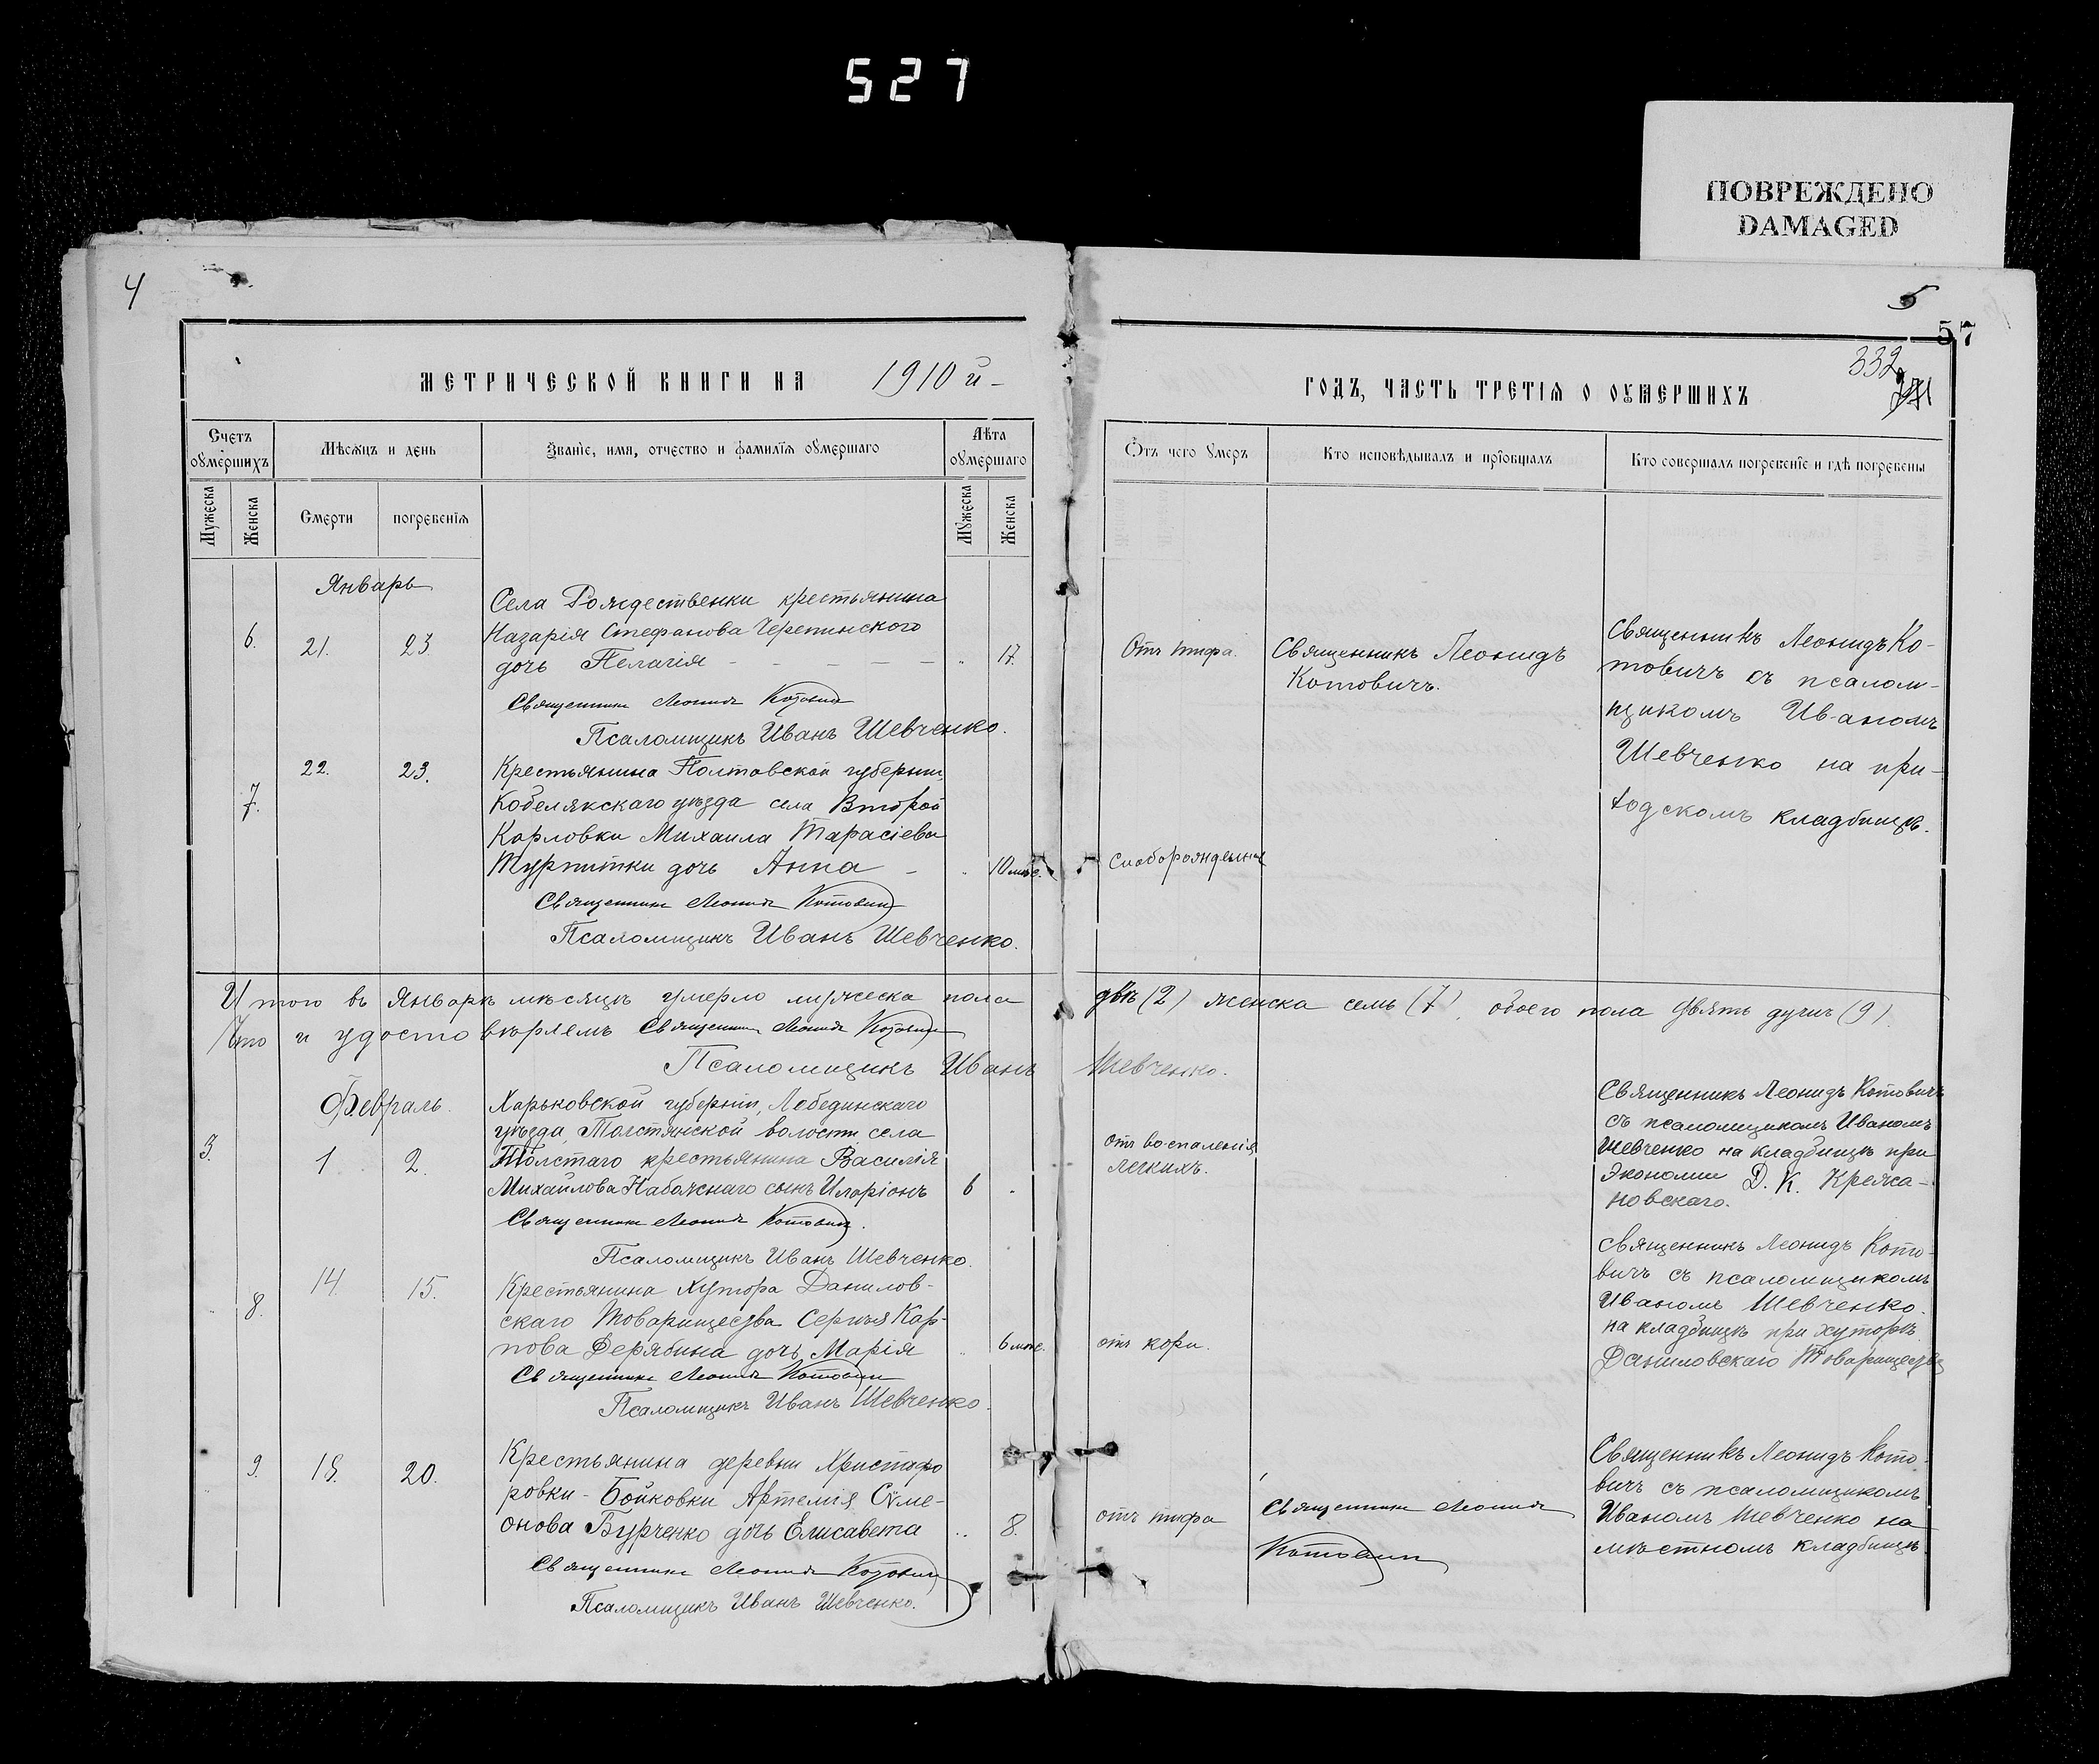 527
ПОВРЕЖДЕНО
DAMAGED
4
5
57
332
МЕТРИЧЕСКОЙ КНИГИ НА 1910 й
ГОДЪ, ЧАСТЬ ТРЕТІЯ О ОУМЕРШИХЪ
Счетъ оумершихъ
Мѣсяцъ и день
Званіе, имя, отчество и фамилія оумершаго
Лѣта оумершаго
Отъ чего умеръ
Кто исповѣдывалъ и пріобщалъ
Кто совершалъ погребеніе и гдѣ погребены
Мужеска
Женска
Смерти
погребенія
Мужеска
Женска
Январь
6. 21. 23
Села Рождественки крестьянина
Назарія Стефанова Черепинского
дочь Пелагія 17.
Священникъ Леонидъ Котовичъ
Псаломщикъ Иванъ Шевченко.
Отъ тифа.
Священникъ Леонидъ
Котовичъ.
Священникъ Леонидъ Ко-
товичъ съ псалом-
щикомъ Иваномъ
Шевченко на при-
ходскомъ кладбищѣ.
7. 22. 23.
Крестьянина Полтавской губерніи,
Кобелякскаго уѣзда села Второй
Карловки Михаила Тарасіева
Турпитки дочь Анна 10 мѣс.
Священникъ Леонидъ Котовичъ
Псаломщикъ Иванъ Шевченко.
Слаборожденная
Итого въ Январѣ мѣсяцѣ умерло мужеска пола двѣ (2) женска семь (7), обоего пола девять душъ (9).
Что и удостовѣряемъ Священникъ Леонидъ Котовичъ
Псаломщикъ Иванъ Шевченко.
Февраль.
3. 1 2.
Харьковской губерніи, Лебединскаго
уѣзда, Толстянской волости села
Толстаго крестьянина Василія
Михайлова Набожнаго сынъ Иларіонъ 6
Священникъ Леонидъ Котовичъ.
Псаломщикъ Иванъ Шевченко.
отъ воспаленія
легкихъ.
Священникъ Леонидъ Котовичъ
съ псаломщикомъ Иваномъ
Шевченко на кладбищѣ при
Экономіи Д. К. Кряжа-
новскаго.
8. 14. 15.
Крестьянина Хутора Данилов-
скаго Товарищества Сергѣя Кар-
пова Дерябина дочь Марія 6 мѣс.
Священникъ Леонидъ Котовичъ
Псаломщикъ Иванъ Шевченко.
отъ кори.
Священникъ Леонидъ Кото-
вичъ съ псаломщикомъ
Иваномъ Шевченко.
на кладбищѣ при хуторѣ
Даниловскаго Товарищества
9. 18. 20.
Крестьянина деревни Христофо
ровки-Бойковки Артемія Сѵме-
онова Бурченко дочь Елисавета 8.
Священникъ Леонидъ Котовичъ
Псаломщикъ Иванъ Шевченко.
отъ тифа
Священникъ Леонидъ
Котовичъ
Священникъ Леонидъ Кото-
вичъ съ псаломщикомъ
Иваномъ Шевченко на
мѣстномъ кладбищѣ.